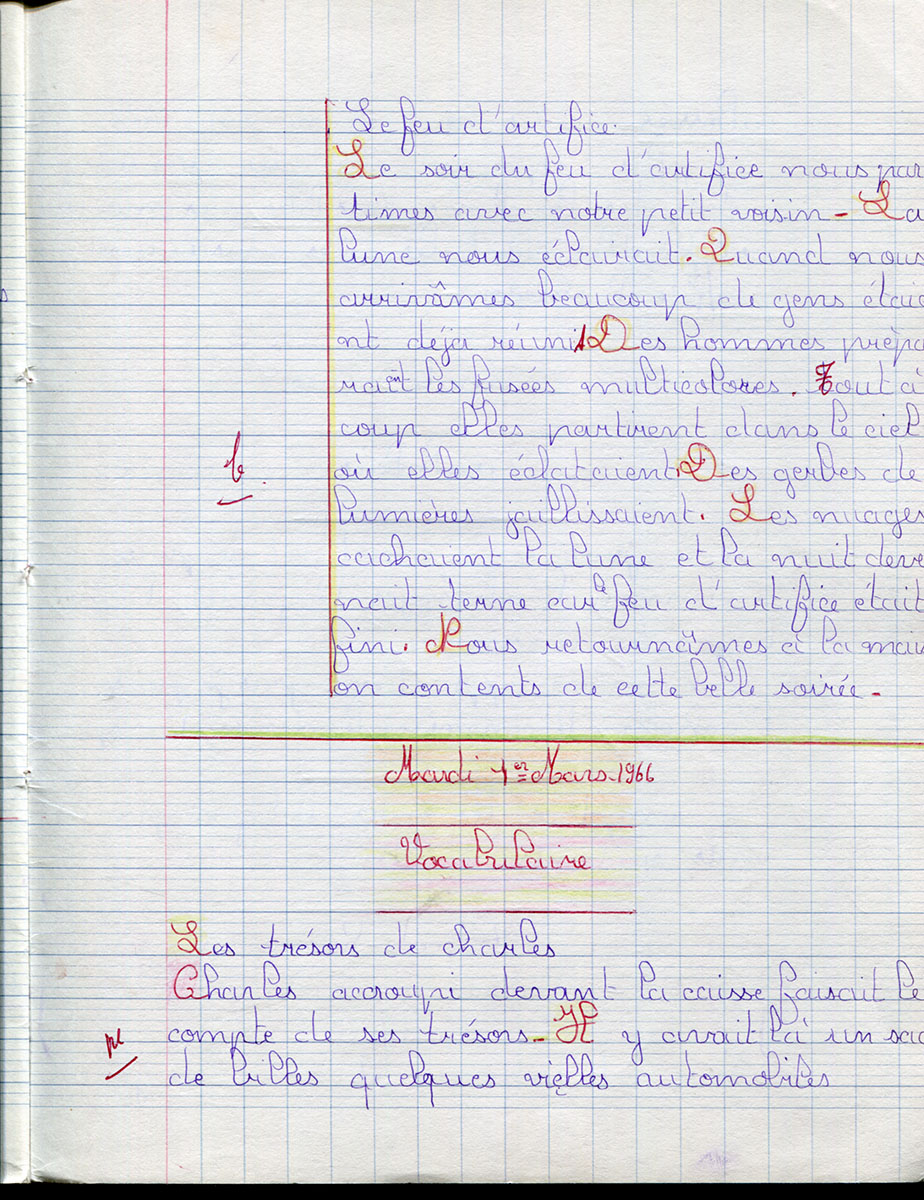 Le feu d'artifice.
Le soir du feu d'artifice nous par
times avec notre petit voisin - La
lune nous éclairait. Quand nous
arrivâmes beaucoup de gens étaie
nt déjà réunis Des hommes prépa
raient les fusées multicolores. Tout à
coup elles partirent dans le ciel
où elles éclataient. Des gerbes de
lumières jaillissaient. Les nuages
cachaient la lune et la nuit deve
nait terne car le feu d'artifice était
fini. Nous retournâmes à la mais
on contents de cette belle soirée -
Mardi 1er Mars 1966
Vocabulaire
Les trésors de charles
Charles accroupi devant la caisse faisait le
compte de ses trésors - Il y avait là un sac
de billes quelques vielles automobiles